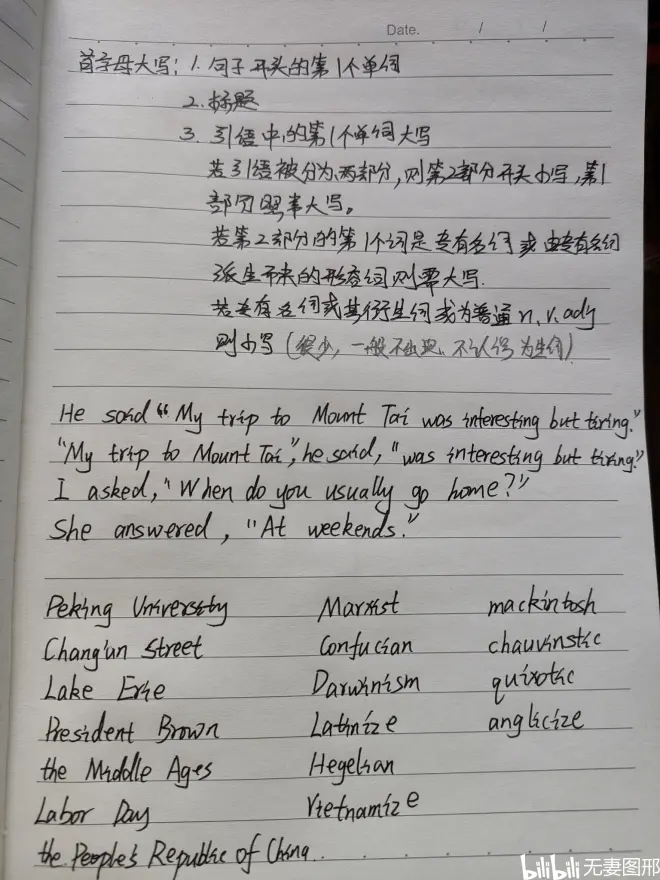 Date. / /
首字母大写：1. 句子开头的第1个单词
2. 标题
3. 引语中的第1个单词大写
若引语被分为两部分，则第2部分开头小写，第1
部分照常大写。
若第2部分的第1个词是专有名词或由专有名词
派生而来的形容词则要大写.
若专有名词或其衍生词或为普通n.v.adj
则小写（很少，一般不出现、不认得为生词）
He said "My trip to Mount Tai was interesting but tiring."
"My trip to Mount Tai", he said, "was interesting but tiring."
I asked, "When do you usually go home?"
She answered, "At weekends."
Peking University Marxist mackintosh
Chang'an Street Confucian chauvinstic
Lake Erie Darwinism quixotic
President Brown Latinize anglicize
the Middle Ages Hegelian
Labor Day Vietnamize
the People's Republic of China
bilibili 无妻图邢